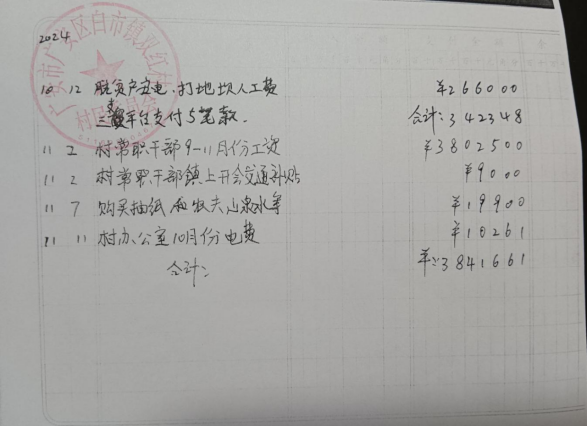 广安市广安区白市镇双红村
村民委员会
2024
10 12 脱贫产业电.打地坝人工费 ¥266000
三资平台支付5笔款. 合计:342348
11 2 村常职干部9-11月份工资 ¥3802500
11 2 村常职干部镇上开会交通补贴 ¥9000
11 7 购买抽纸和农夫山泉水等 ¥19900
11 11 村办公室10月份电费 ¥10261
合计: ¥:3841661